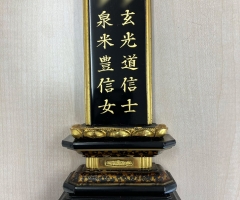 玄光道信士
泉米豊信女